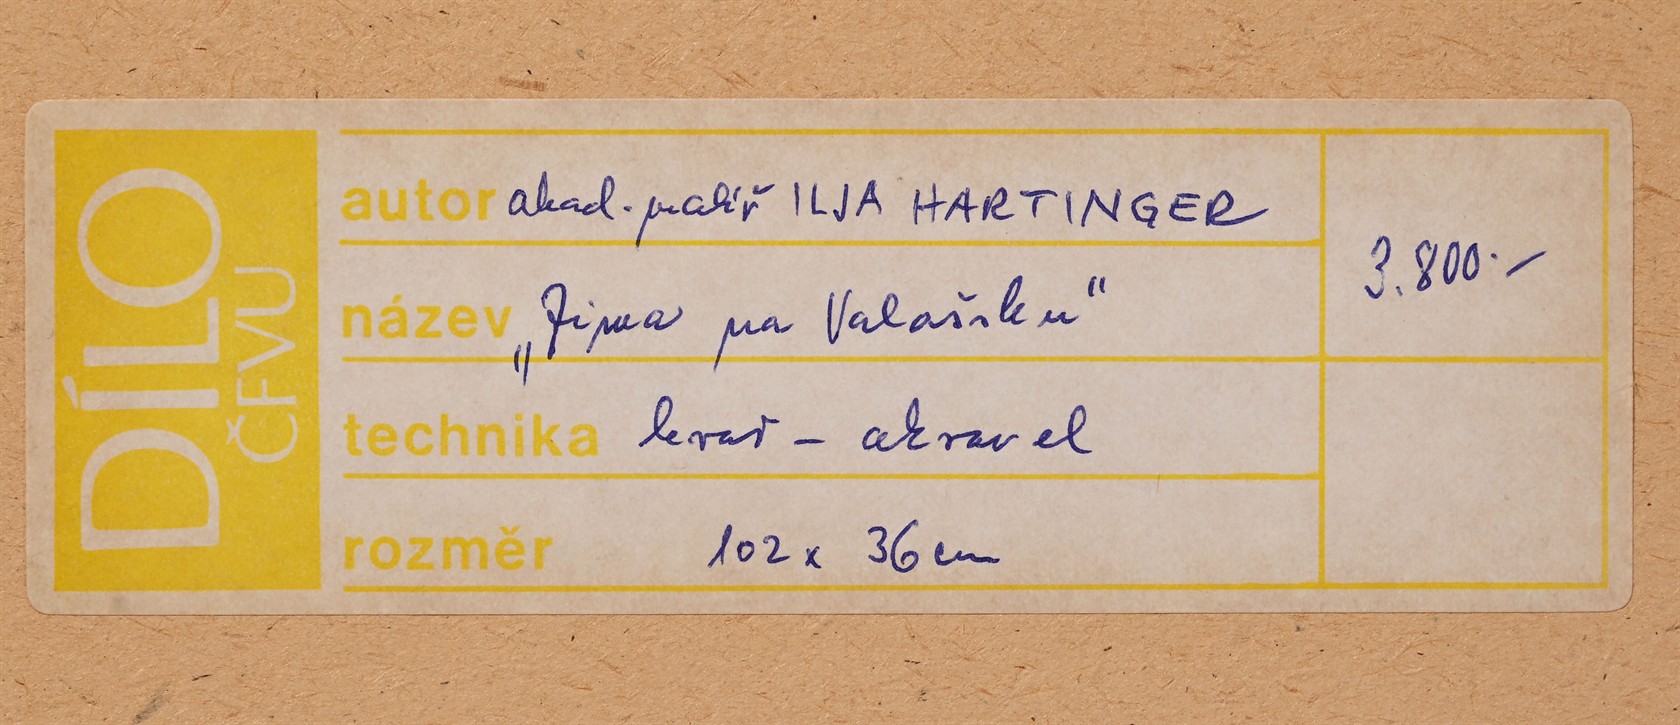 DÍLO
ČFVU
autor akad. malíř ILJA HARTINGER
název „Zima na Valašsku“
technika kvaš – akvarel
rozměr 102 x 36 cm
3.800.-